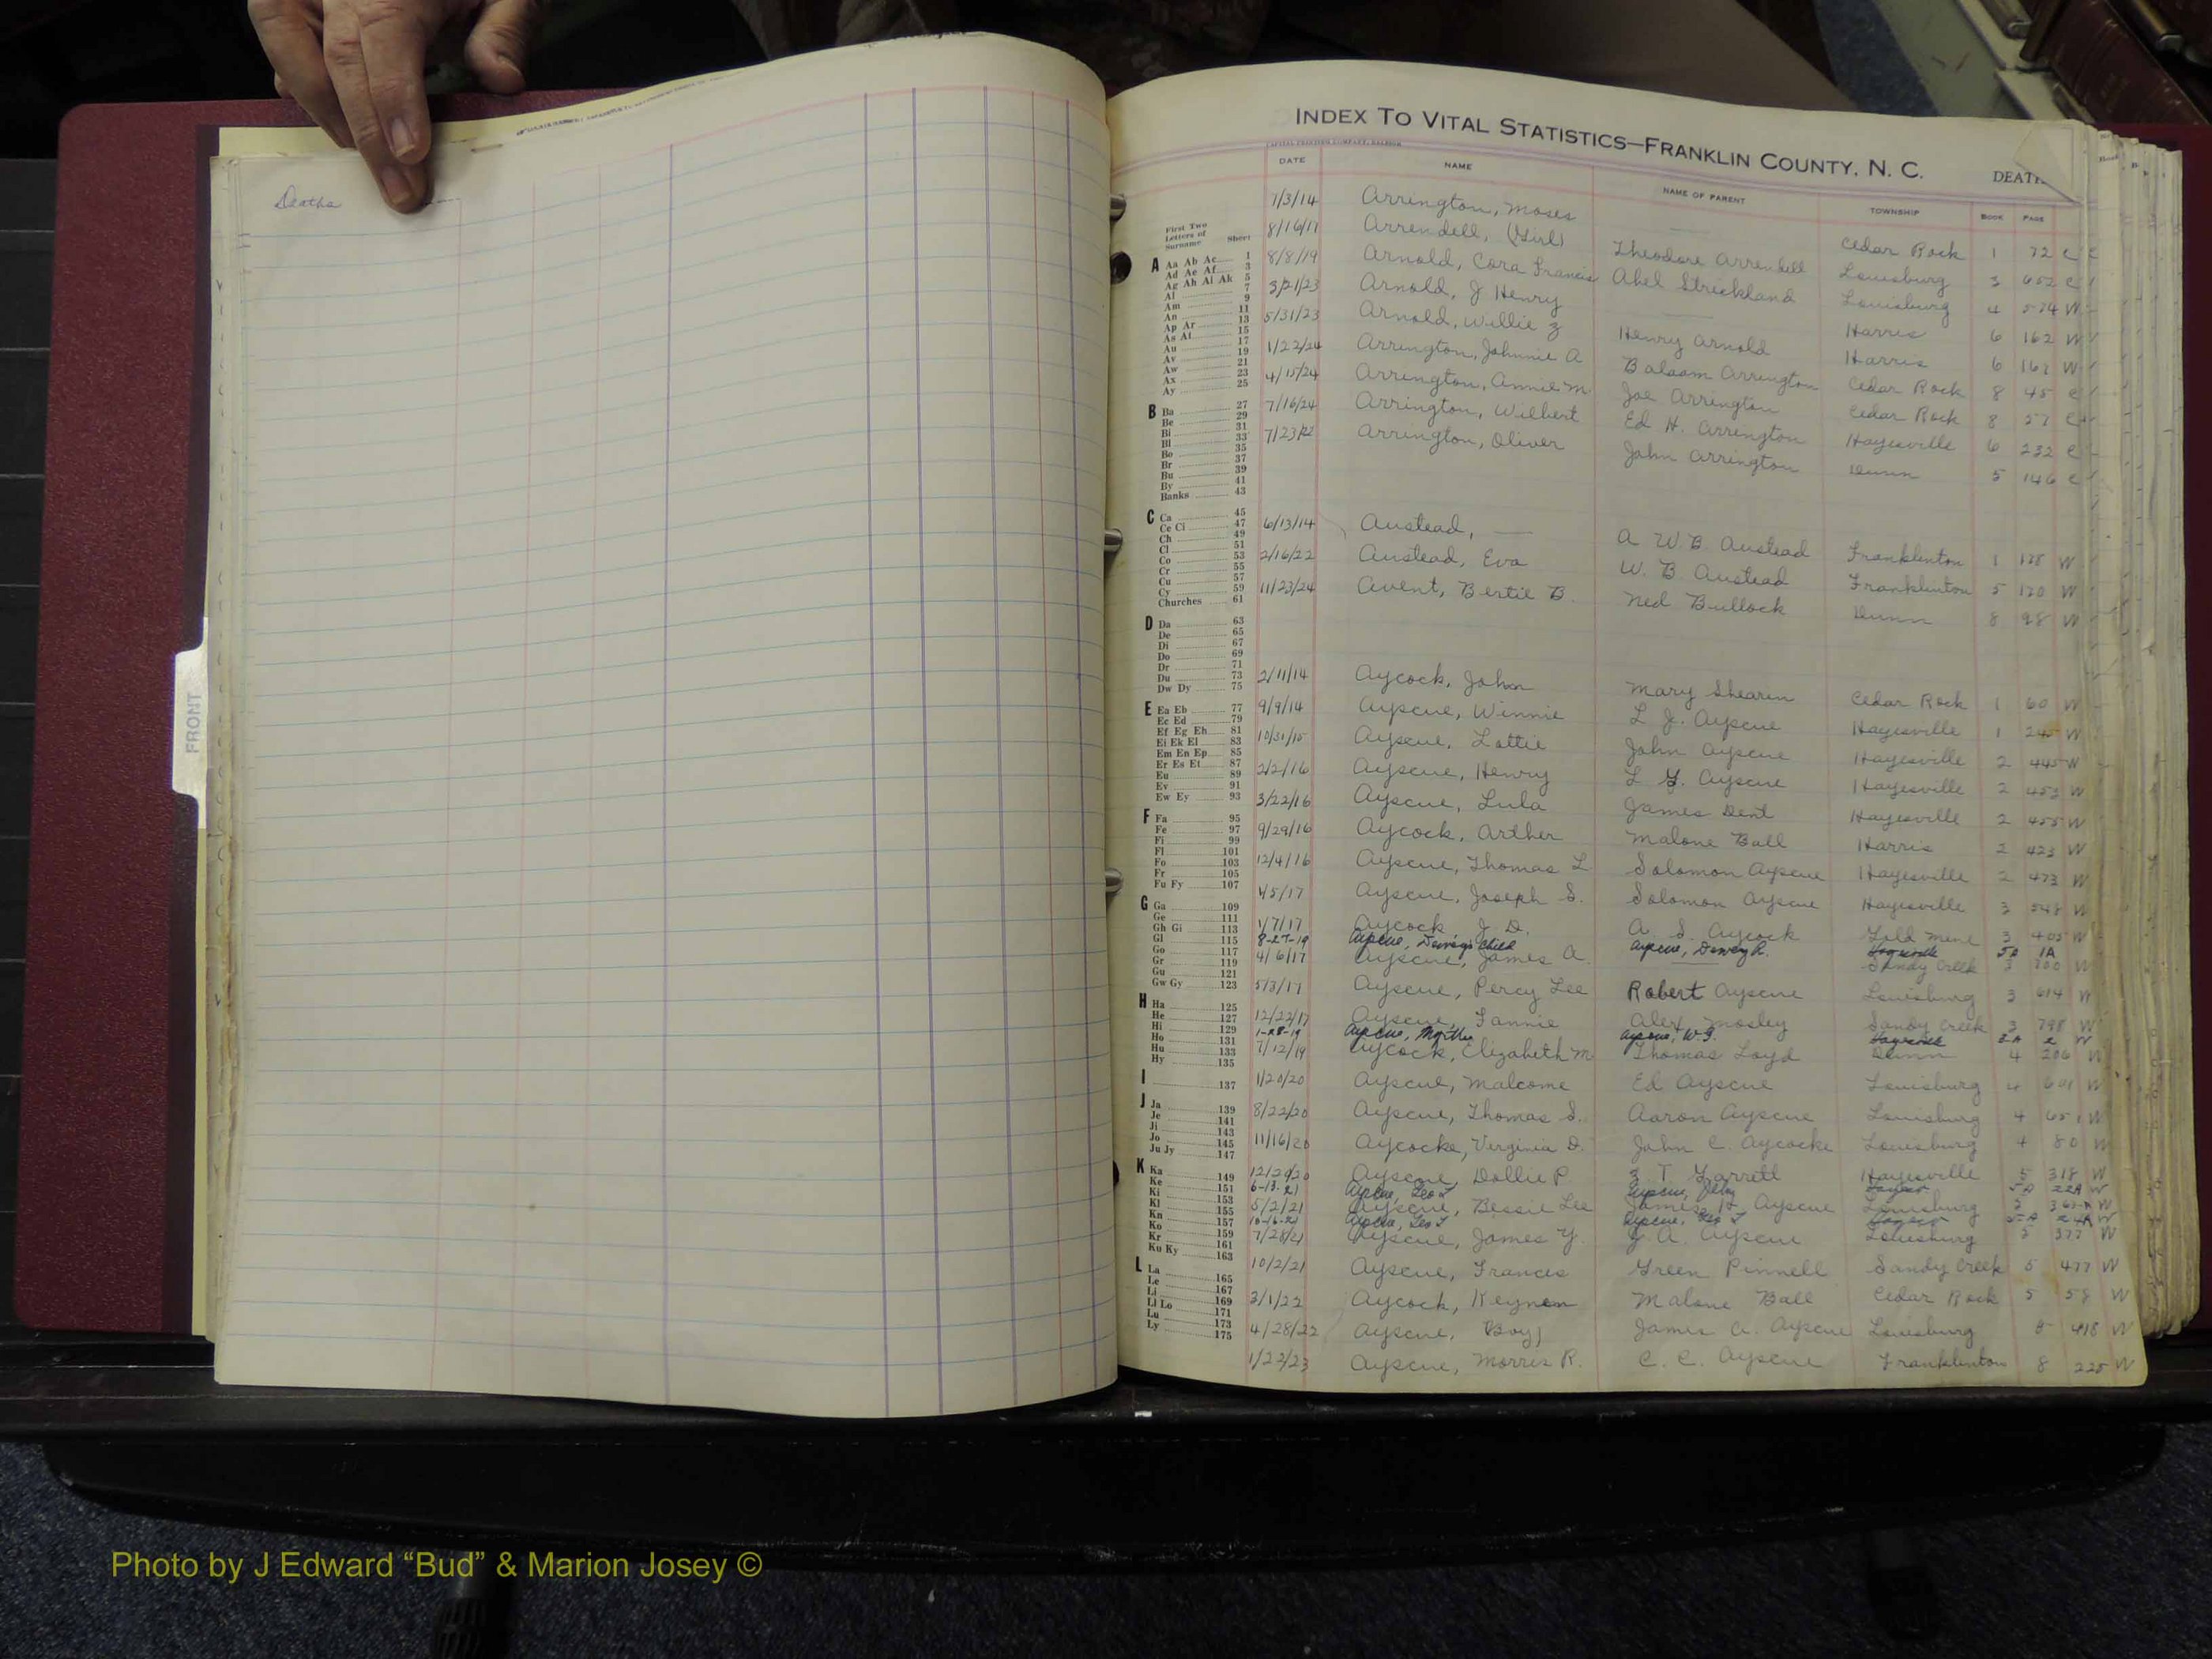 Deaths
FRONT
INDEX TO VITAL STATISTICS—FRANKLIN COUNTY, N. C.
DEATH
DATE NAME NAME OF PARENT TOWNSHIP BOOK PAGE
First Two Letters of Surname Sheet
A Aa Ab Ac 1
Ad Ae Af 3
Ag Ah Ai Ak 5
Al 7
Am 9
An 11
Ap Ar 13
As At 15
Au 17
Av 19
Aw 21
Ax 23
Ay 25
B Ba 27
Be 29
Bi 31
Bl 33
Bo 35
Br 37
Bu 39
By 41
Banks 43
C Ca 45
Ce Ci 47
Ch 49
Cl 51
Co 53
Cr 55
Cu 57
Cy 59
Churches 61
D Da 63
De 65
Di 67
Do 69
Dr 71
Du 73
Dw Dy 75
E Ea Eb 77
Ec Ed 79
Ef Eg Eh 81
Ei Ek El 83
Em En Ep 85
Er Es Et 87
Eu 89
Ev 91
Ew Ey 93
F Fa 95
Fe 97
Fi 99
Fl 101
Fo 103
Fr 105
Fu Fy 107
G Ga 109
Ge 111
Gh Gi 113
Gl 115
Go 117
Gr 119
Gu 121
Gw Gy 123
H Ha 125
He 127
Hi 129
Ho 131
Hu 133
Hy 135
I 137
J Ja 139
Je 141
Ji 143
Jo 145
Ju Jy 147
K Ka 149
Ke 151
Ki 153
Kl 155
Kn 157
Ko 159
Kr 161
Ku Ky 163
L La 165
Le 167
Li 169
Ll Lo 171
Lu 173
Ly 175
7/3/14 Arrington, Moses Cedar Rock 1 72 C
8/16/17 Arrendell, (Girl) Theodore Arrendell Louisburg 3 652 C
8/8/19 Arnold, Cora Francis Abel Strickland Louisburg 4 574 W
3/21/23 Arnold, J Henry Harris 6 162 W
5/31/23 Arnold, Willie Z Henry Arnold Harris 6 W
1/22/24 Arrington, Johnnie A Balaam Arrington Cedar Rock 8 45 C
4/15/24 Arrington, Annie M Joe Arrington Cedar Rock 8 57 C
7/16/24 Arrington, Wilbert Ed H. Arrington Hayesville 6 232 C
7/23/22 Arrington, Oliver John Arrington Dunn 5 146 C
6/13/14 Austead, — A W B. Austead Franklinton 1 W
2/16/22 Austead, Eva W. B. Austead Franklinton 5 170 W
11/23/24 Avent, Bertie B. Ned Bullock Dunn 8 98 W
2/11/14 Aycock, John Mary Shearin Cedar Rock 1 60 W
9/9/14 Ayscue, Winnie L J. Ayscue Hayesville 1 W
10/31/15 Ayscue, Lottie John Ayscue Hayesville 2 445 W
2/2/16 Ayscue, Henry L Ayscue Hayesville 2 453 W
3/22/16 Ayscue, Lula James Dent Hayesville 2 455 W
9/29/16 Aycock, Arther Malone Ball Harris 2 423 W
12/4/16 Ayscue, Thomas L Solomon Ayscue Hayesville 2 473 W
1/5/17 Ayscue, Joseph S. Solomon Ayscue Hayesville 3 548 W
1/7/17 Aycock J. D. A. S. Aycock Gold Mine 3 405 W
8-27-19 Ayscue, Dewey's Child Ayscue, Dewey R. 5A 1A
4/6/17 Ayscue, James A. Sandy Creek 3 W
5/3/17 Ayscue, Percy Lee Robert Ayscue Louisburg 3 614 W
12/22/17 Ayscue, Fannie Alex Mosley Sandy Creek 3 798 W
1-28-19 Ayscue, Martha Ayscue, W. S. W
7/12/19 Aycock, Elizabeth M Thomas Loyd Dunn 4 206 W
1/20/20 Ayscue, Malcome Ed Ayscue Louisburg 4 601 W
8/22/20 Ayscue, Thomas S. Aaron Ayscue Louisburg 4 651 W
11/16/20 Aycocke, Virginia D. John C. Aycocke Louisburg 4 80 W
12/29/20 Ayscue, Dollie P Z T Garrett Hayesville 5 318 W
6-13-21 Ayscue, Geo L Ayscue, 5A 22A W
5/2/21 Ayscue, Bessie Lee James H Ayscue Louisburg W
10-16-21 Ayscue, Geo T Ayscue, Geo T 5A 24A W
7/28/21 Ayscue, James Y. J. A. Ayscue Louisburg 5 377 W
10/2/21 Ayscue, Frances Green Pinnell Sandy Creek 5 477 W
3/1/22 Aycock, Keynon Malone Ball Cedar Rock 5 58 W
4/28/22 Ayscue, Boy) James A. Ayscue Louisburg 5 418 W
1/22/23 Ayscue, Morris R. C. C. Ayscue Franklinton 8 225 W
Photo by J Edward “Bud” & Marion Josey ©